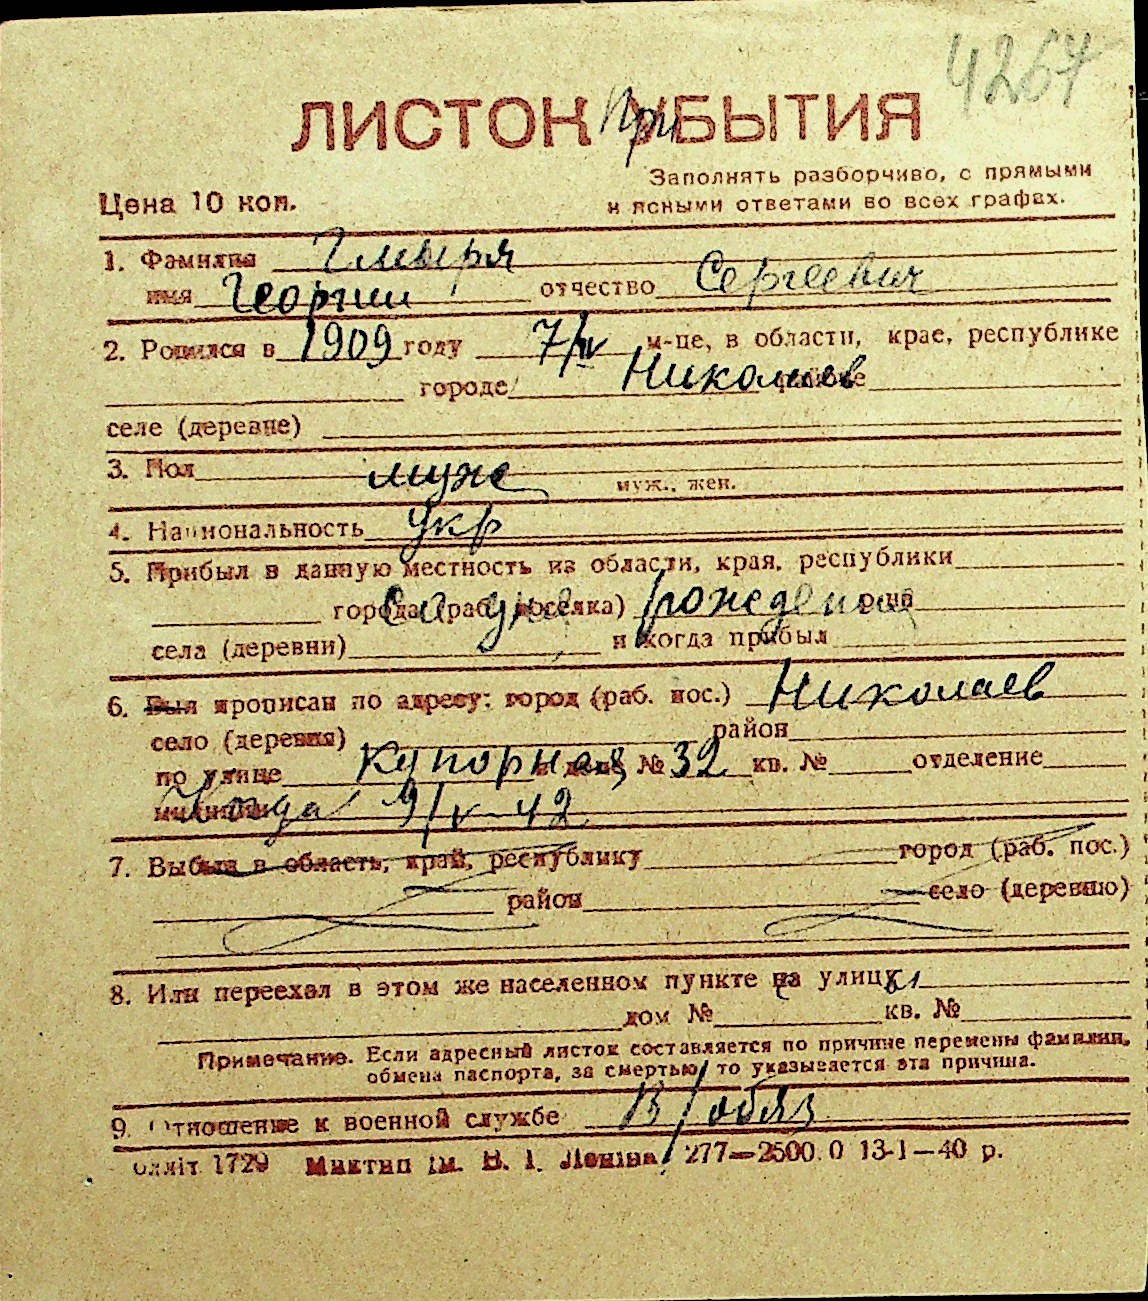 4267
ЛИСТОК При УБЫТИЯ
Заполнять разборчиво, с прямыми
Цена 10 коп. и ясными ответами во всех графах.
1. Фамилия Гмыря
имя Георгий отчество Сергеевич
2. Родился в 1909 году 7/IV м-це, в области, крае, республике
городе Николаев районе
селе (деревне)
3. Пол муж муж., жен.
4. Национальность укр
5. Прибыл в данную местность из области, края, республики
города (раб. поселка) Со дня рождения
села (деревни) и когда прибыл
6. Был прописан по адресу: город (раб. пос.) Николаев
село (деревня) район
по улице Купорная дом № 32 кв. № отделение
милиции Когда 9/V-42
7. Выбыл в область, край, республику город (раб. пос.)
район село (деревню)
8. Или переехал в этом же населенном пункте на улицу
дом № кв. №
Примечание. Если адресный листок составляется по причине перемены фамилии,
обмена паспорта, за смертью, то указывается эта причина.
9. Отношение к военной службе В/обяз
1729 Миктип ім. В. І. Леніна 277—2500.0 13-1—40 р.